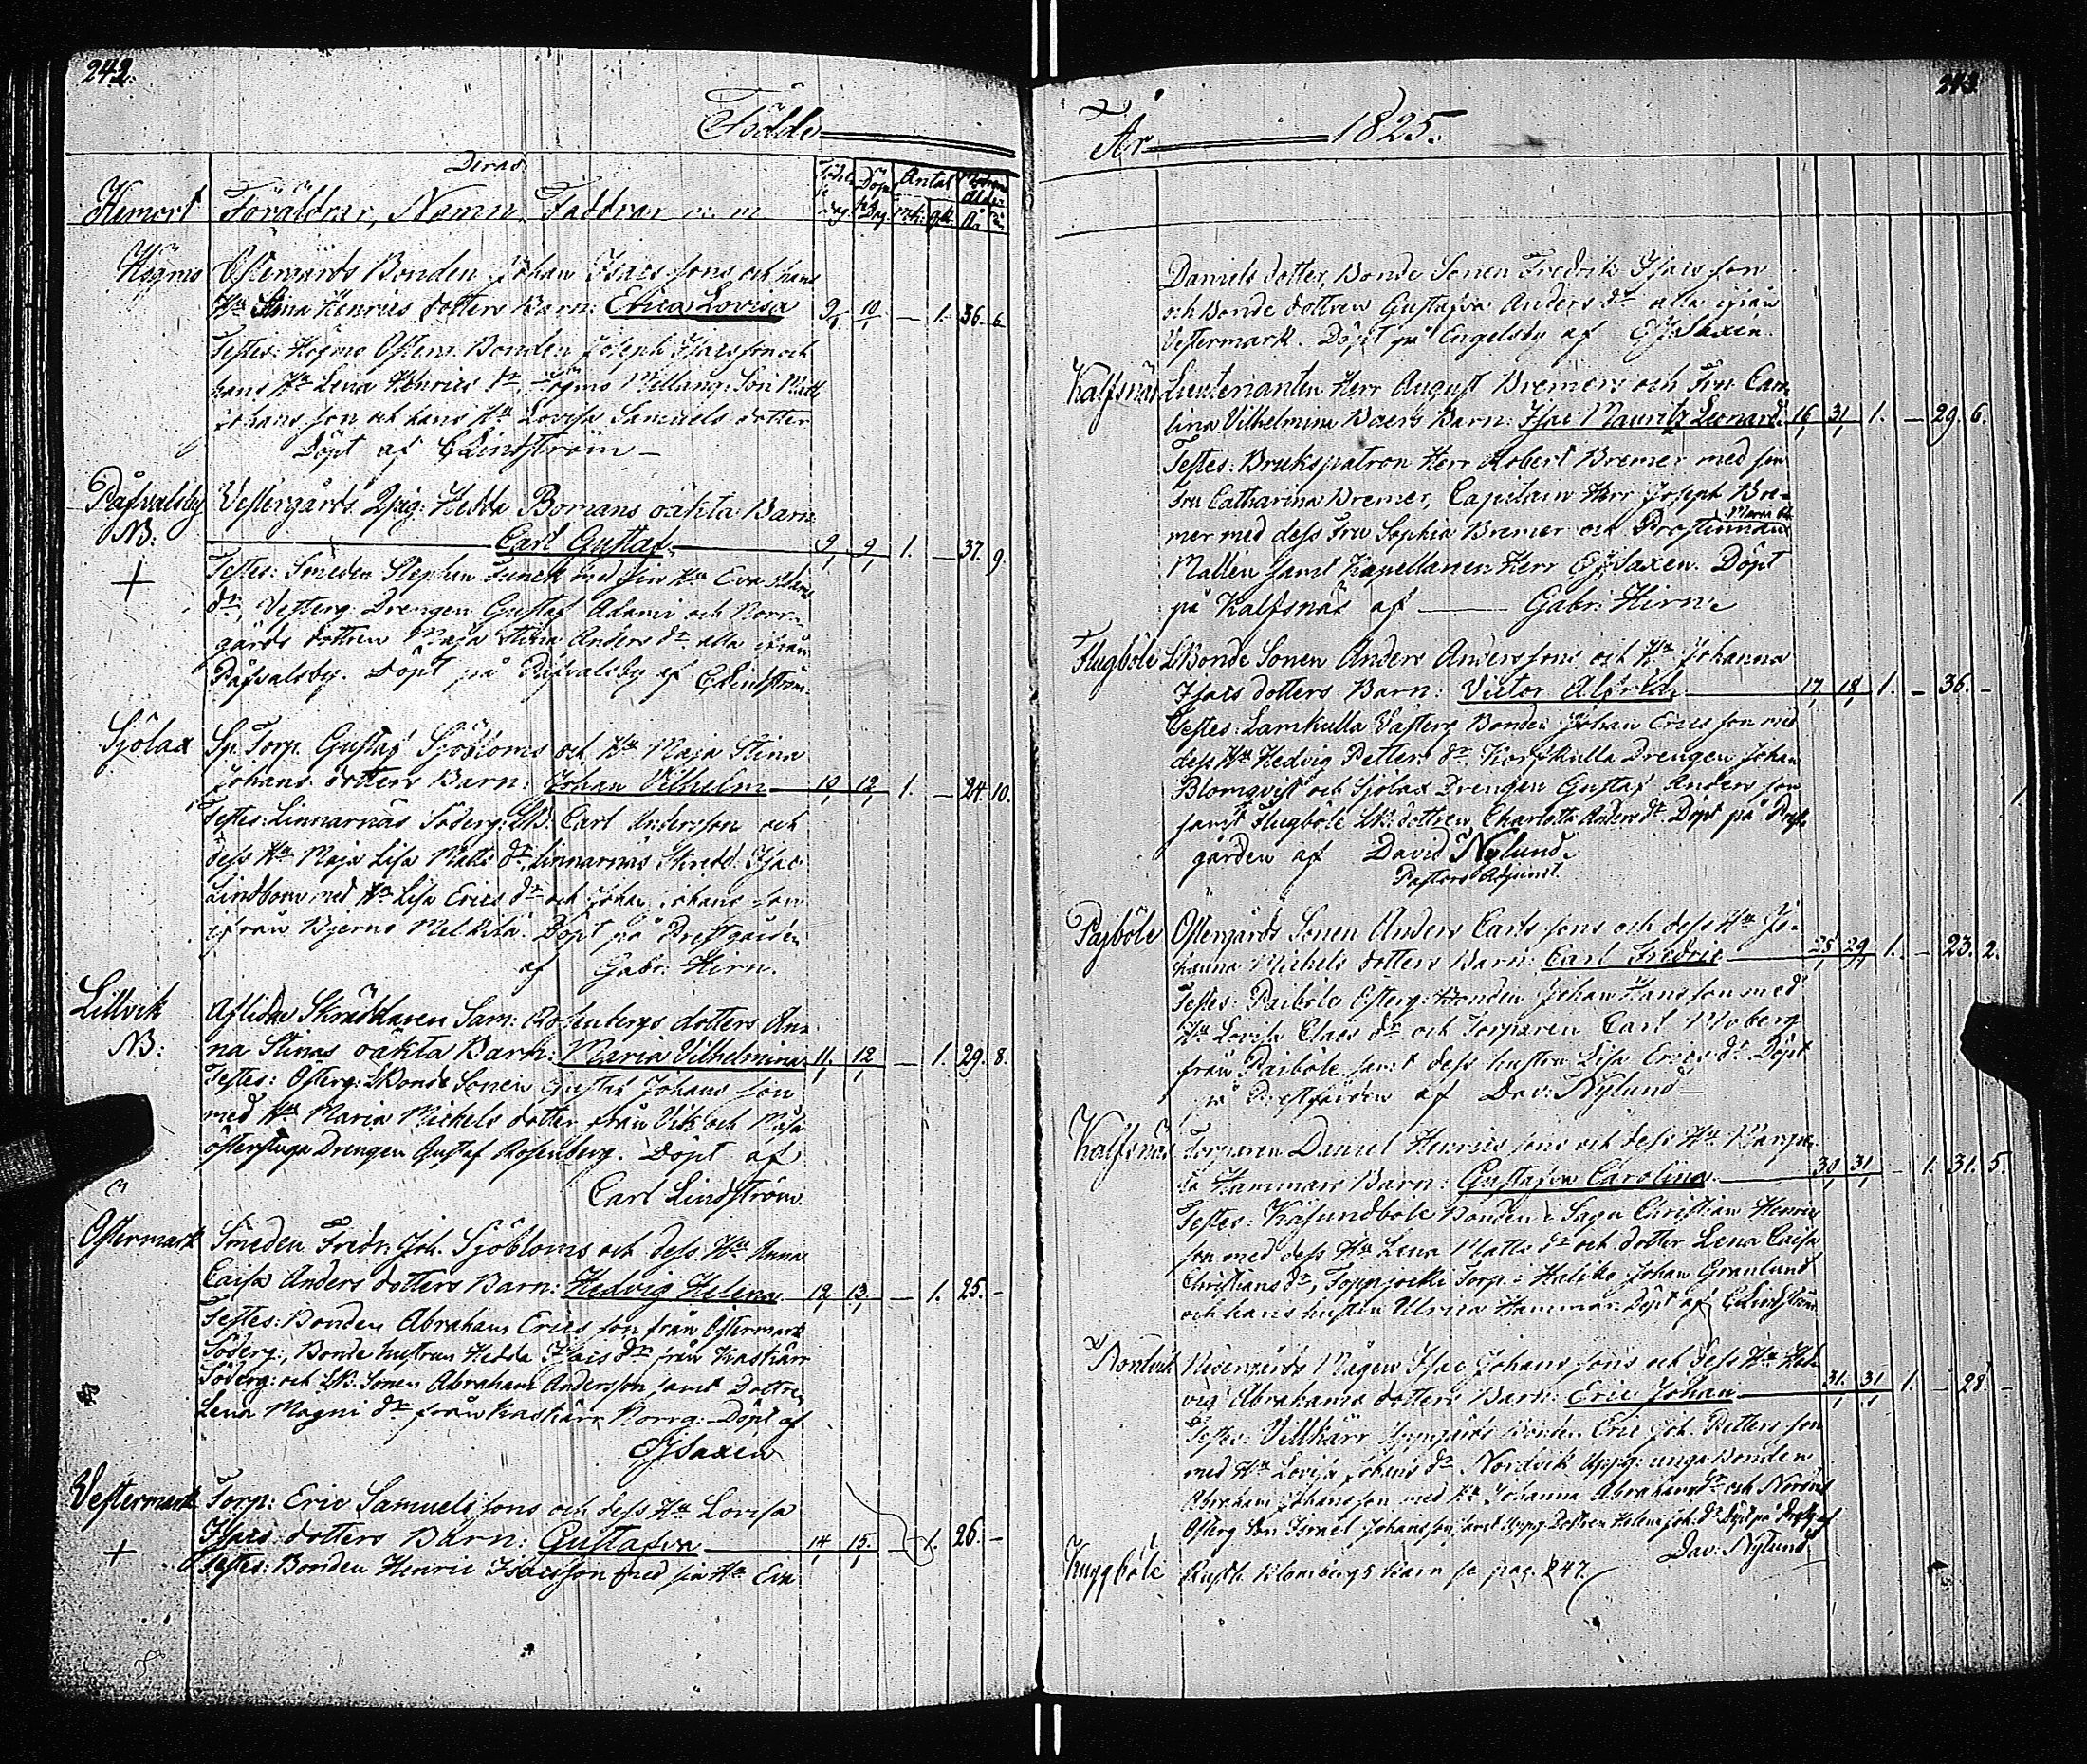 242.
Födde
Deras
Hemort Föräldrar, Namn. Faddrar m. m
Födelse dag. Döpelse Dag. Antal mk. qk. Modrens Ålder År
Högmo Östergårds Bonden Johan Isacs sons och hans
Hu Stina Henrics dotters Barn: Erica Lovisa 9/1 10/1 — 1. 36. 6
Testes: Högmo Österg. Bonden Joseph Isacsson och
hans Hu Lena Henrics dr, Högmo Mellang. Son Matts
Johans son och hans Hu Lovisa Samuels dotter
Döpt af C Lindström —
Påfvalsby Vestergårds Pig. Hedda Bomans oäkta Barn
NB: Carl Gustaf 9/1 9/1 1. — 37. 9.
Testes: Smeden Stephan Funck med sin Hu Eva
dr, Vesterg. Drengen Gustaf Adami och Norr-
gårds dottren Maja Stina Anders dr alla ifrån
Påfvalsby. Döpt på Påfvalsby af C Lindström.
Sjölax Sp. Torp. Gustaf Sjöbloms och Hu Maja Stina
Johans dotters Barn: Johan Vilhelm 10/1 12/1 1. — 24. 10.
Testes: Linnarnäs Söderg. LB. Carl Andersson och
dess Hu Maja Lisa Matts dr, Linnarnäs Skredd. Isac
Lindbom med Hu Lisa Erics dr och Johan Johans son
ifrån Bjerno Melkila. Döpt på Prestgården
af Gabr. Hirn.
Lillvik Aflidne Skräddaren Sam: Rosenbergs dotters An-
NB: na Stinas oäkta Barn: Maria Vilhelmina 11/1 12/1 — 1. 29. 8.
Testes: Österg: LBonde Sonen Gustaf Johans son
med Hu Maria Michels dotter från Vik och
Drengen Gustaf Rosenberg. Döpt af
Carl Lindström
Östermark Smeden Fredr. Joh. Sjöbloms och dess Hu Anna
Caisa Anders dotters Barn: Hedvig Helena 12/1 13/1 — 1. 25. —
Testes: Bonden Abraham Erics son från Östermark
Söderg., Bonde hustrun Hedda Isacs dr från Kaskärr
Söderg: och LB. Sonen Abraham Andersson samt Dottren
Lena Magni dr från Kaskärr Norrg. Döpt af
CJ Saxen
Vestermark Torp: Eric Samuels sons och dess Hu Lovisa
Isacs dotters Barn: Gustafva 14/1 15/1 — 1. 26. —
Testes: Bonden Henric Isacsson med sin Hu Eva
243.
År 1825.
Daniels dotter, Bonde Sonen Fredrik Isacs son
och Bonde dottren Gustafva Anders dr alla ifrån
Vestermark. Döpt på Engelsby af CJ Saxén.
Kalfsnäs Lieutenanten Herr August Bremers och Fru Caro-
lina Vilhelmina Baers Barn: Isac Mauritz Leonard 16/1 31/1 1. — 29. 6.
Testes: Brukspatron Herr Robert Bremer med sin
Fru Catharina Bremer, Capitain Herr Joseph Bre-
mer med dess Fru Sophia Bremer och Prostinnan
Mallén samt Kapellanen Herr CJ Saxen. Döpt
på Kalfsnäs af Gabr. Hirn.
Flugböle LBonde Sonen Anders Anders sons och Hu Johanna
Isacs dotters Barn: Victor Alfred 17/1 18/1 1. — 36. —
Testes: Lamkulla Västerg Bonden Johan Erics son med
dess Hu Hedvig Petters dr Korfkulla Drengen Johan
Blomqvist och Sjölax Drengen Gustaf Anders son
samt Flugböle LB: dottren Charlotta Anders dr. Döpt på Prest-
gården af David Nylund.
Pastors Adjunct.
Pajböle Östergårds Sonen Anders Carls sons och dess Hu Jo-
hanna Michels dotters Barn: Carl Fredric 25/1 29/1 1. — 23. 2.
Testes: Paiböle Österg: Bonden Johan Hansson med
Hu Lovisa Claes dr och Torparen Carl Moberg
från Paiböle samt dess hustru Lisa Erics dr Döpt
på Prestgården af Dav. Nylund —
Kalfsnäs Torparen Daniel Henrics sons och dess Hu
Hammars Barn: Gustafva Carolina 30/1 31/1 — 1. 31. 5.
Testes: Bonden i Sagu Christian Henrics
son med dess Hu Lena Matts dr och dotter Lena Caisa
Christians dr, Torp. i Haliko Johan Granlund
och hans hustru Ulrica Hammar. Döpt af C Lindström
Nordvik Nedergårds Mågen Isac Johans sons och dess Hu Hed-
vig Abrahams dotters Barn: Eric Johan 31/1 31/1 1. — 28. —
Testes: Villkärr Uppgårds Bonden Eric Joh. Petters son
med Hu Lovisa Johans dr. Nordvik Uppg: unga Bonden
Abraham Johansson med Hu Johanna Abrahams dr och Nordvik
Österg Son Israel Johansson samt Uppg Dottren Helena Joh. dr. Döpt på Prestg. af
Dav: Nylund
Kuggböle Rusth. Blombergs Barn se pag. 247.